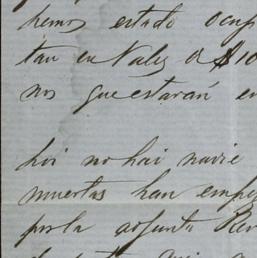 hemos estado ocup
tan en Vales a $10
nos que estarán en
hoi no hai navie
muertas han empe
por la adjunta Rev